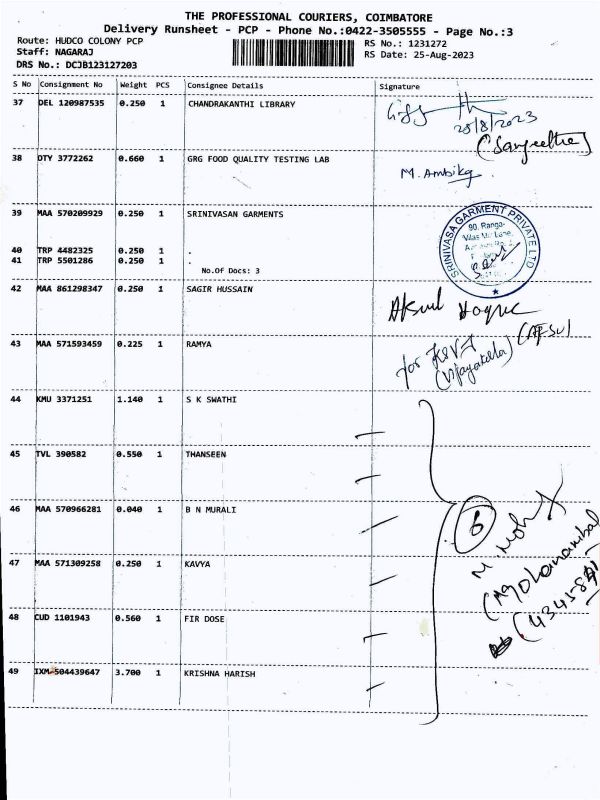 THE PROFESSIONAL COURIERS, COIMBATORE
Delivery Runsheet - PCP - Phone No.:0422-3505555 - Page No.:3
Route: HUDCO COLONY PCP RS No.: 1231272
Staff: NAGARAJ RS Date: 25-Aug-2023
DRS No.: DCJB123127203
S No Consignment No Weight PCS Consignee Details Signature
37 DEL 120987535 0.250 1 CHANDRAKANTHI LIBRARY
25/8/2023
(Sangeetha)
38 DTY 3772262 0.660 1 GRG FOOD QUALITY TESTING LAB
M. Ambika
39 MAA 570209929 0.250 1 SRINIVASAN GARMENTS
SRINIVASA GARMENT PRIVATE LTD
90, Ranga-
40 TRP 4482325 0.250 1 .
41 TRP 5501286 0.250 1 .
No.Of Docs: 3
42 MAA 861298347 0.250 1 SAGIR HUSSAIN
43 MAA 571593459 0.225 1 RAMYA
for
44 KMU 3371251 1.140 1 S K SWATHI
45 TVL 390582 0.550 1 THANSEEN
46 MAA 570966281 0.040 1 B N MURALI
6
47 MAA 571309258 0.250 1 KAVYA
48 CUD 1101943 0.560 1 FIR DOSE
49 IXM 504439647 3.700 1 KRISHNA HARISH